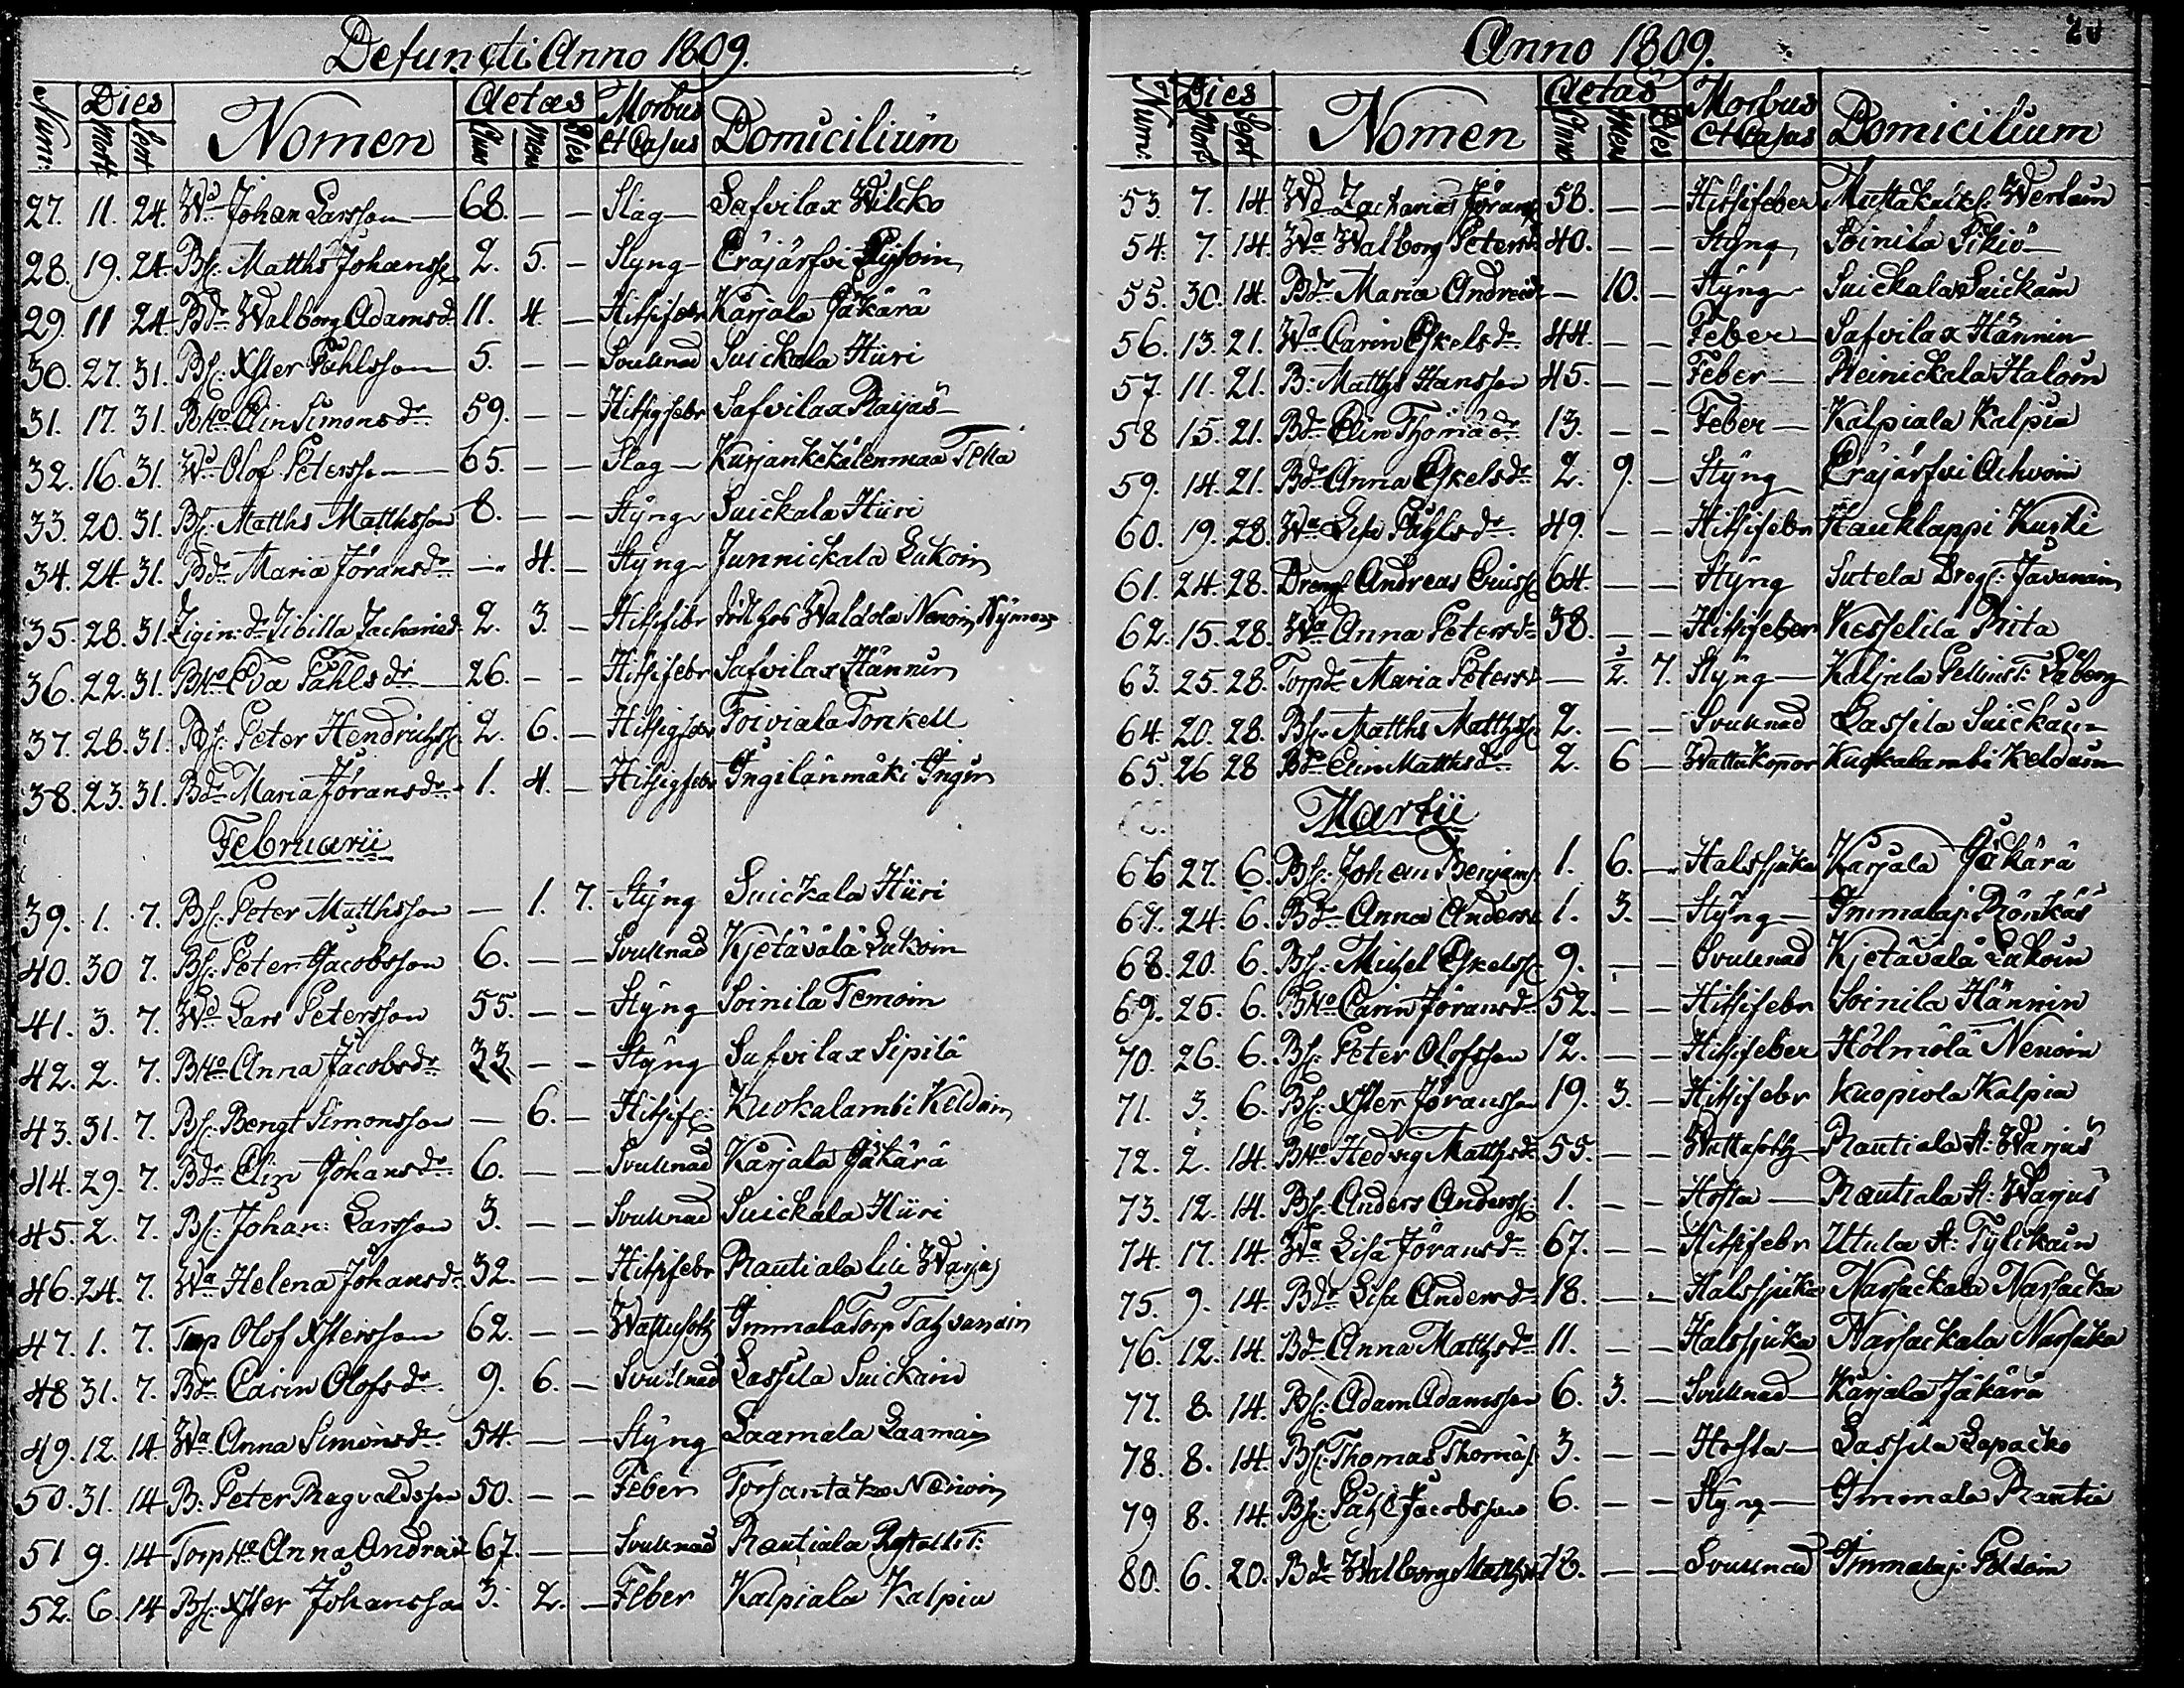 Defuncti Anno 1809.
Num: Dies Mort Sept Nomen Aetas Ann Mens Dies Morbus et Casus Domicilium
27. 11. 24. Wd Johan Larsson 68. — — Slag Safvilax Wilcko
28. 19. 24. Bs: Matths Johanss 2. 5. — Styng Eräjärfvi
29. 11 24 Bdr Walborg Adamsdr 11. 4. — Hitsifebr Karjala Jäkärä
30. 27. 31. Bs: Xster Påhlsson 5. — — Svullnad Suickala Hiiri
31. 17. 31. BHo Elin Simonsdr 59. — — Hitsigfebr Safvilax Raijas
32. 16. 31. Wd Olof Petersson 65. — — Slag Kurjankekälenmaa Tella
33. 20. 31. Bs: Matths Matthsson 8. — — Styng Suickala Hiiri
34. 24. 31. Bdr Maria Jöransdr — 4. — Styng Junnickala Lukoin
35. 28. 31. Zigin: dr Sibilla Zachariæd 2. 3. — Hitsifebr Waldola Nenoin
36. 22. 31. BHo Eva Påhlsdr 26. — — Hitsifebr Safvilax Hännin
37. 28. 31. Bs: Peter Hendrichss 2. 6. — Hitsigfebr Toiviala Tonkell
38. 23. 31. Bdr Maria Jöransdr 1. 4. — Hitsigfebr Ingilänmäki Ingin
Februarii
39. 1. 7. Bs: Peter Matthsson — 1. 7. Styng Suickala Hiiri
40. 30 7. Bs: Peter Jacobsson 6. — — Svullnad Kjetävälä Lukoin
41. 3. 7. Wd Lars Petersson 55. — — Styng Soinila Temoin
42. 2. 7. BHo Anna Jacobsdr 33. — — Styng Safvilax Sipilä
43. 31. 7. Bs: Bengt Simonsson — 6. — Hitsif: Kuokalambi Keldain
44. 29. 7. Bdr Elin Johansdr 6. — — Svullnad Karjala Jäkärä
45. 2. 7. Bs: Johan: Larsson 3. — — Svullnad Suickala Hiiri
46. 24. 7. Wa Helena Johansdr 32. — — Hitsifebr Rautiala lili Warjus
47. 1. 7. Torp Olof Xstersson 62. — — Wattusotz Immala Torp Tatzvanain
48 31. 7. Bdr Carin Olofsdr 9. 6. — Svullnad Lassila Suickain
49. 12. 14 Wa Anna Simonsdr 54. — — Styng Laamala Laamain
50. 31. 14 B: Peter Ragvaldsson 50. — — Feber Torsantaka Nenoin
51 9. 14 TorpHo Anna Andreæd 67. — — Svullnad Rautiala
52. 6. 14 Bs: Xster Johansson 3. 2. — Feber Kalpiala Kalpia
Anno 1809. 20
Num: Dies Mort Sept Nomen Aetas Anno Mens Dies Morbus et Casus Domicilium
53. 7. 14. Wd Zacharias Jöranss 58. — — Hitsifeber Mustakalks: Wertain
54. 7. 14. Wa Walborg Petersdr 40. — — Styng Soinila Sikiö
55. 30. 14. Bdr Maria Andreædr — 10. — Styng Suickala Suickain
56. 13. 21. Wa Carin Eskelsdr 44. — — Feber Safvilax Hännin
57. 11. 21. B: Matths Hansson 45. — — Feber Reinickala Haloin
58 15. 21. Bdr Elin Thomædr 13. — — Feber Kalpiala Kalpia
59. 14. 21. Bdr Anna Eskelsdr 2. 9. — Styng Eräjärfvi Achvoin
60. 19. 28. Wa Lisa Påhlsdr 49. — — Hitsifebr Hauklappi Kurki
61. 24. 28. Dreng Andreas Ericss 64. — — Styng Sutela Dregs: Javanain
62. 15. 28. Wa Anna Petersdr 38. — — Hitsifeber Kesselila Rita
63. 25. 28. Torpdr Maria Petersd — ½. 7. Styng Kaljula Pellins T: Laberg
64. 20. 28. Bs: Matths Matthss 2. — — Svullnad Lassila Suickain
65. 26 28 Bdr Elin Matthsdr 2. 6 — Wattukopor Kuokalambi Keldain
Martii
66 27. 6. Bs: Johan Benjams 1. 6. — Halssjuka Karjala Jäkärä
67. 24. 6. Bdr Anna Andersd 1. 3. — Styng Immalaj: Rönkäs
68. 20. 6. Bs: Michel Eskelss 9. — — Svullnad Kjetävälä Lukoin
69. 25. 6. BHo Carin Jöransdr 52. — — Hitsifebr Soinila Hännin
70. 26. 6. Bs: Peter Olofsson 12. — — Hitsifeber Hölmölä Nenoin
71. 3. 6. Bs: Xster Jöransson 19. 3. — Hitsifebr Kuopiola Kalpia
72. 2. 14. BHo Hedvig Matthsdr 55. — — Wattusotz Rautiala St: Warjus
73. 12. 14. Bs: Anders Anderss: 1. — — Hosta Rautiala St: Warjus
74. 17. 14. Wa Lisa Jöransdr 67. — — Hitsifebr Utula St: Tylickain
75. 9. 14. Bdr Lisa Andersdr 18. — — Halssjuka Narsackala Narsacka
76. 12. 14. Bdr Anna Matthsdr 11. — — Halssjuka Narsackala Narsacka
77. 8. 14. Bs: Adam Adamsson 6. 3. — Svullnad Karjala Jäkärä
78. 8. 14. Bs: Thomas Thomæs: 3. — — Hosta Lassila Lapacko
79 8. 14. Bs: Påhl Jacobsson 6. — — Styng Immala Rautia
80. 6. 20. Bdr Walborg Matthsdr 18. — — Svullnad Immalaj: Poldoin